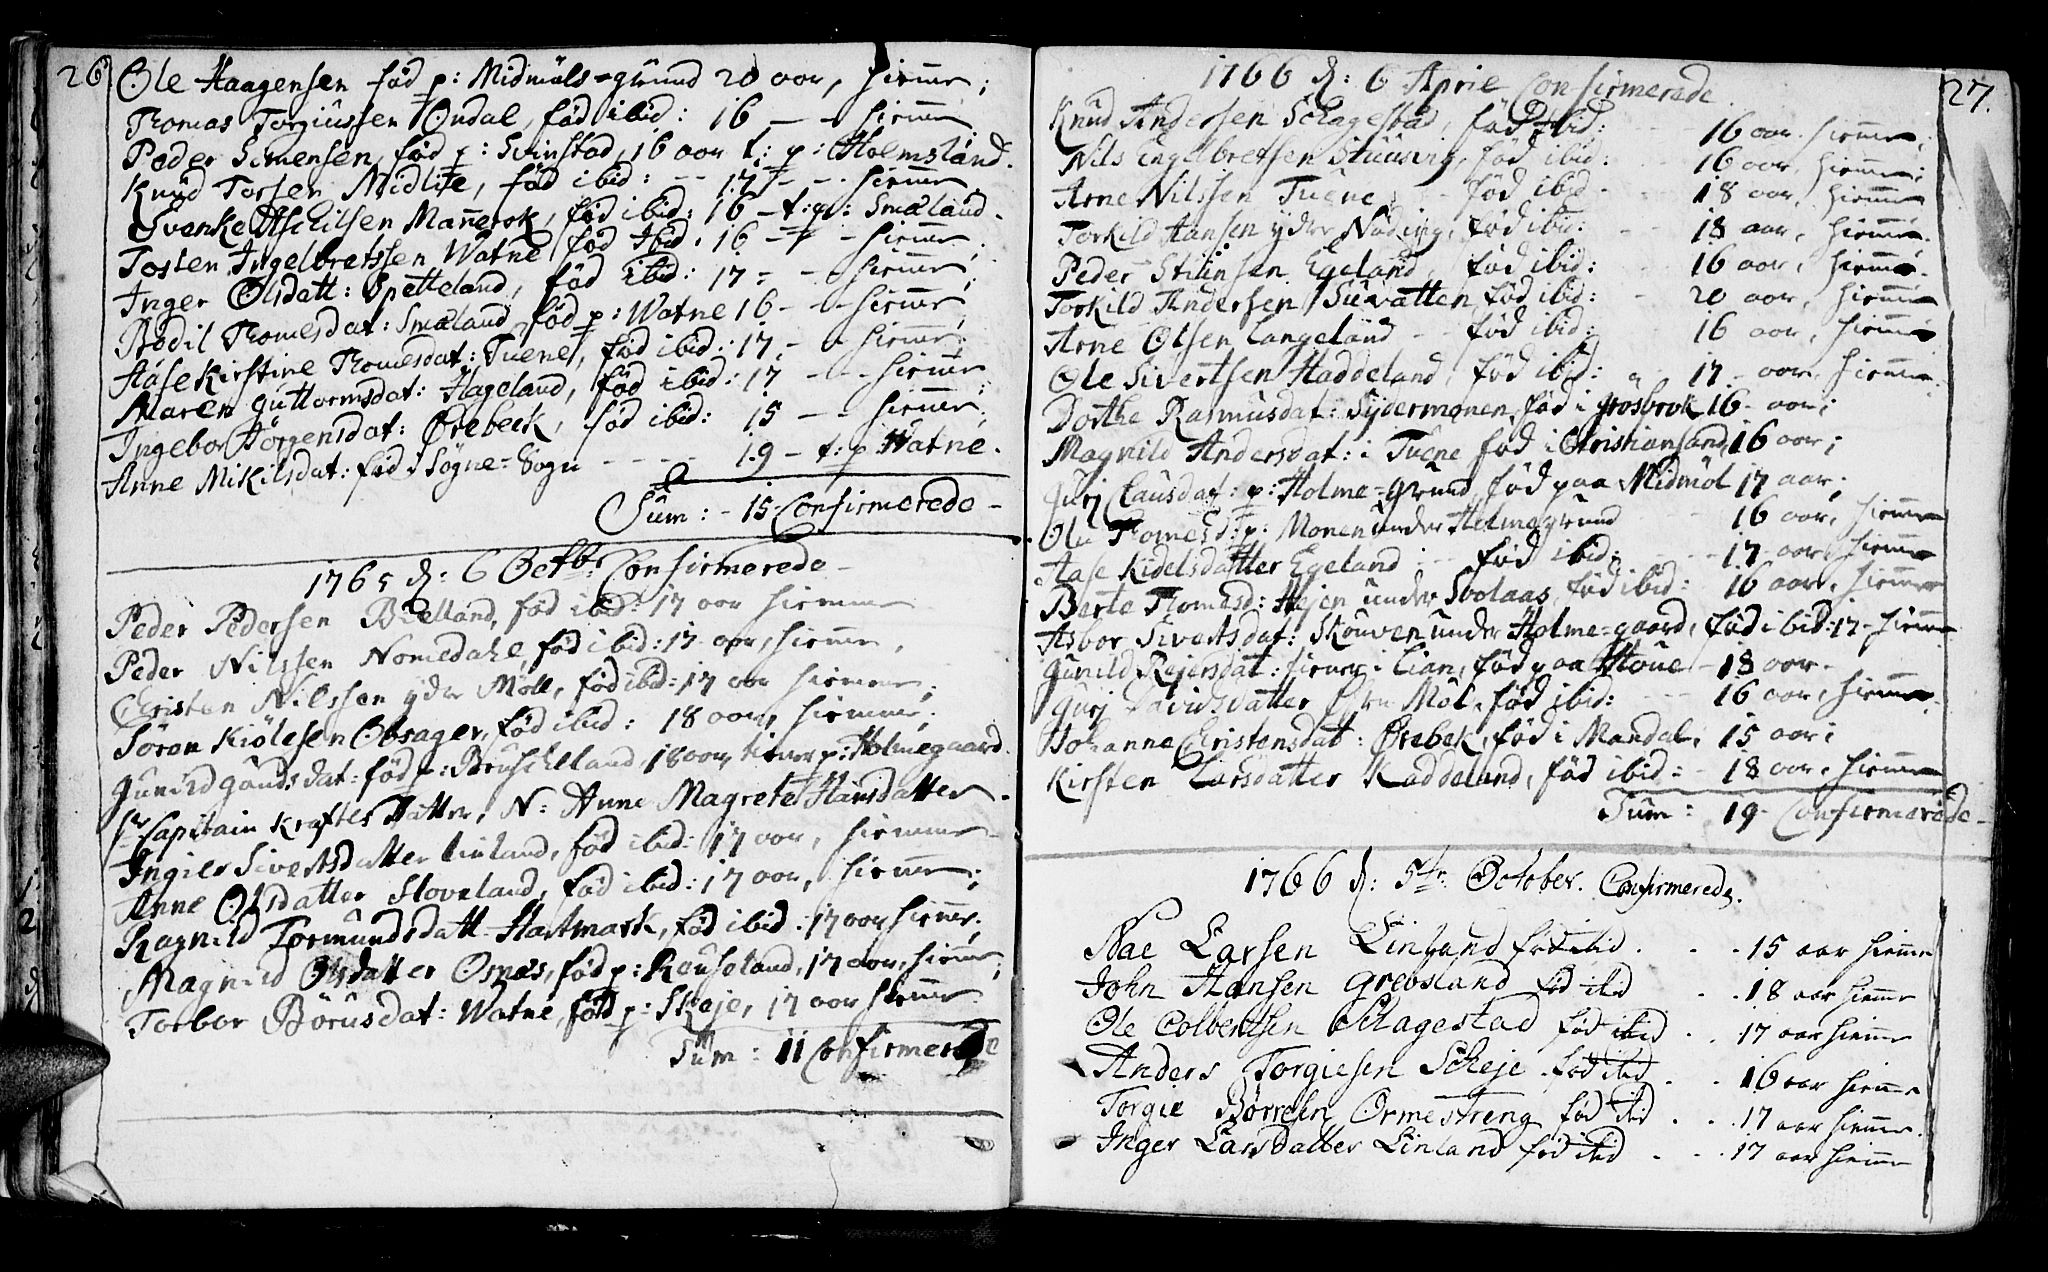 26
Ole Haagensen föd p: Midmåls-grund 20 aar, hiemme;
Thomas Torgiussen Öndal, föd ibid: 16 - - hiemme
Peder Simensen, föd p: Svinstad, 16 aar t: p: Holmsland.
Knud Torsen Midlie, föd ibid: -- 17 - - hiemme
Svenke Ascheilsen Mannerok, föd ibid: 16 - t: p: Smæland.
Tosten Ingelbretssen Watne föd ibid: 16 - - hiemme
Inger Olsdatt: Spetteland, föd ibid: 17 - - hiemme;
Bodil Thomesdat: Smæland föd p: Watne 16 - - hiemme
Aase Kirstine Thomesdat: Tuene, föd ibid: 17 - - hiemme;
Maren Guttormsdat: Hageland, föd ibid: 17 - - hiemme
Ingebor Jörgensdat: Örebeck, föd ibid: 15 - - hiemme;
Anne Mikilsdat: föd i Sögne-Sogn - - - - 19 - t: p Watne.
Sum: - 15 - Confirmerede -
1765 d: 6 Octbr Confirmerede -
Peder Pedersen Bielland, föd ibid: 17 aar hiemme
Peder Nilssen Nomedahl, föd ibid: 17 aar, hiemme,
Christen Nilssen yder Möll, föd ibid: 17 aar hiemme;
Sören Kiölesen Obsager, föd ibid: 18 aar, hiemme,
Gunild Gundsdat: föd p: Bruscheland, 18 aar tiener p: Holmegaard.
hr Capitain Krafts Datter, N: Anne Magrete Hansdatter.
Ingier Sivertsdatter Linland, föd ibid: 17 aar, hiemme
Anne Olsdatter Sloveland, föd ibid: 17 aar, hiemme;
Ragnild Tormundsdatt Hartmark, föd ibid: 17 aar hiemme;
Magnild Olsdatter Osnæs, föd p: Rausoland, 17 aar, hiemme;
Torbor Börusdat: Watne, föd p: Skeje, 17 aar hiemme
Sum: 11 Confirmerede
27.
1766 d: 6 April Confirmerede
Knud Andersen Schagestad, föd ibid: - - 16 aar hiemme;
Nils Engelbretsen Stuusvig, föd ibid: - 16 aar, hiemme;
Arne Nilssen Tuene - - föd ibid - - 18 aar, hiemme
Torkild Hansen yder Nöding, föd ibid: - - 18 aar, hiemme.
Peder Stiinsen Egeland, föd ibid: - - 16 aar, hiemme.
Torkild Andersen Suvatten, föd ibid: - 20 aar, hiemme
Arne Olsen Langeland - - föd ibid: - 16 aar, hiemme
Ole Sivertsen Haddeland, föd ibid: - 17 - aar, hiemme
Dorthe Rasmusdat: Sydermonen, föd i Grosbrok 16 - aar;
Magnild Andersdat: i Tuene föd i Christiansand 16 aar;
Gurj Clausdat: p: Holme-Grund, föd paa Midmöl 17 aar;
Ole Thomesd: p: Monen under Holmegrund - - 16 aar, hiemme
Aase Kidelsdatter Egeland - föd ibid: - - 17 - aar, hiemme
Berte Thomesd: Hejen under Svolaas, föd ibid: - 16 aar, hiemme
Asbor Sivertsdat: Skouven under Holme-gaard, föd ibid: 17 - hiemme
Gunild Rejersdat: tiener i Lian, föd paa Houe - 18 aar -
Gurj Davidsdatter Öfre Möl, föd ibid: - - 16 aar, hiemme.
Johanne Christensdat: Örebek, föd i Mandal, 15 aar;
Kirsten Larsdatter Kaddeland, föd ibid: - 18 aar, hiemme
Sum: 19 - Confirmerede -
1766 d: 5te October. Confirmerede.
Aae Larsen Linland föd ibid. . . . 15 aar hiemme
John Hansen Grebsland föd ibid . . . 18 aar hiemme
Ole Colbentsen Schagestad föd ibid . . . 17 aar hiemme
Anders Torgiesen Scheje föd ibid . . . 16 aar hiemme
Torgie Börresen Ormestreng föd ibid . . . 17 aar hiemme.
Inger Larsdatter Linland föd ibid . . . 17 aar hiemme